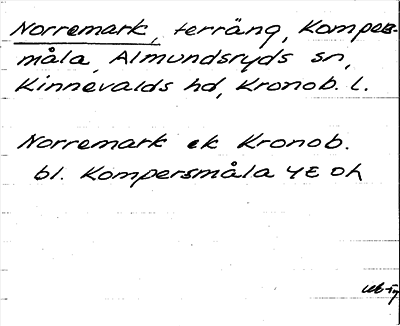 Norremark, terräng, Kompers-
måla, Almundsryds sn,
Kinnevalds hd, Kronob. l.
Norremark ek Kronob.
bl. Kompersmåla 4E oh